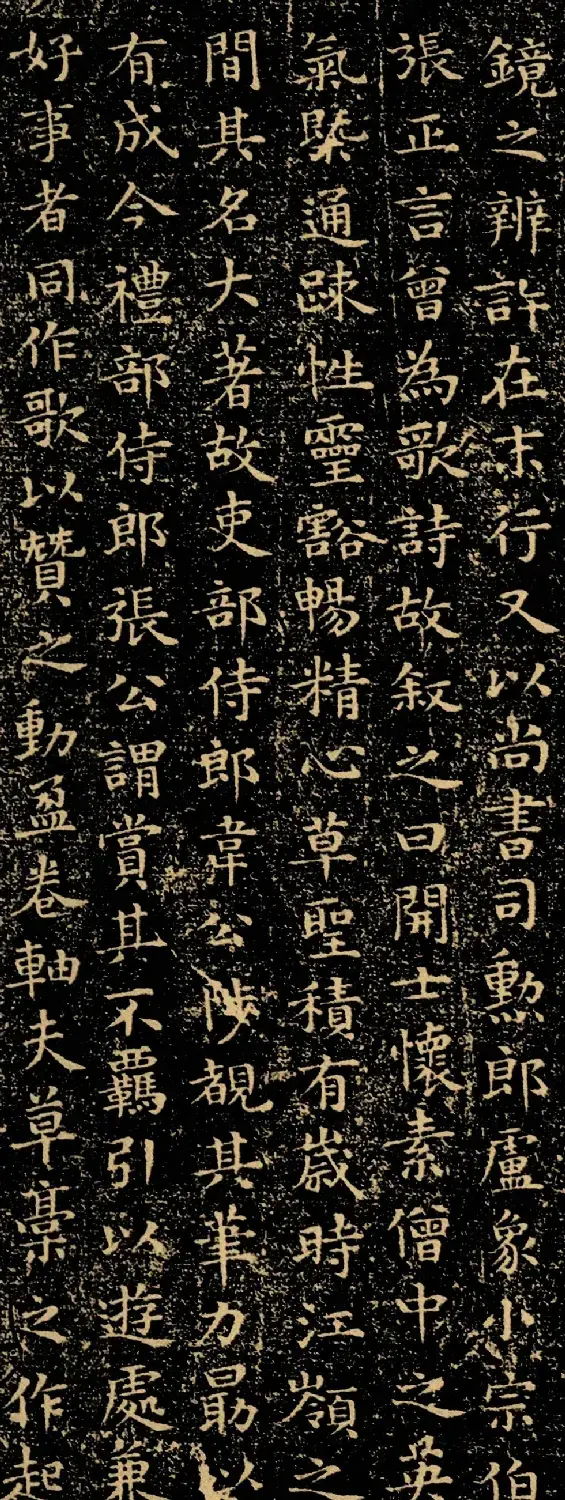 鏡之辨許在末行又以尚書司勲郎盧象小宗伯
張正言曾為歌詩故叙之曰開士懷素僧中之英
氣槩通踈性靈豁暢精心草聖積有歲時江嶺之
間其名大著故吏部侍郎韋公陟覩其筆力勗以
有成今禮部侍郎張公謂賞其不羈引以遊處兼
好事者同作歌以贊之動盈卷軸夫草稾之作起